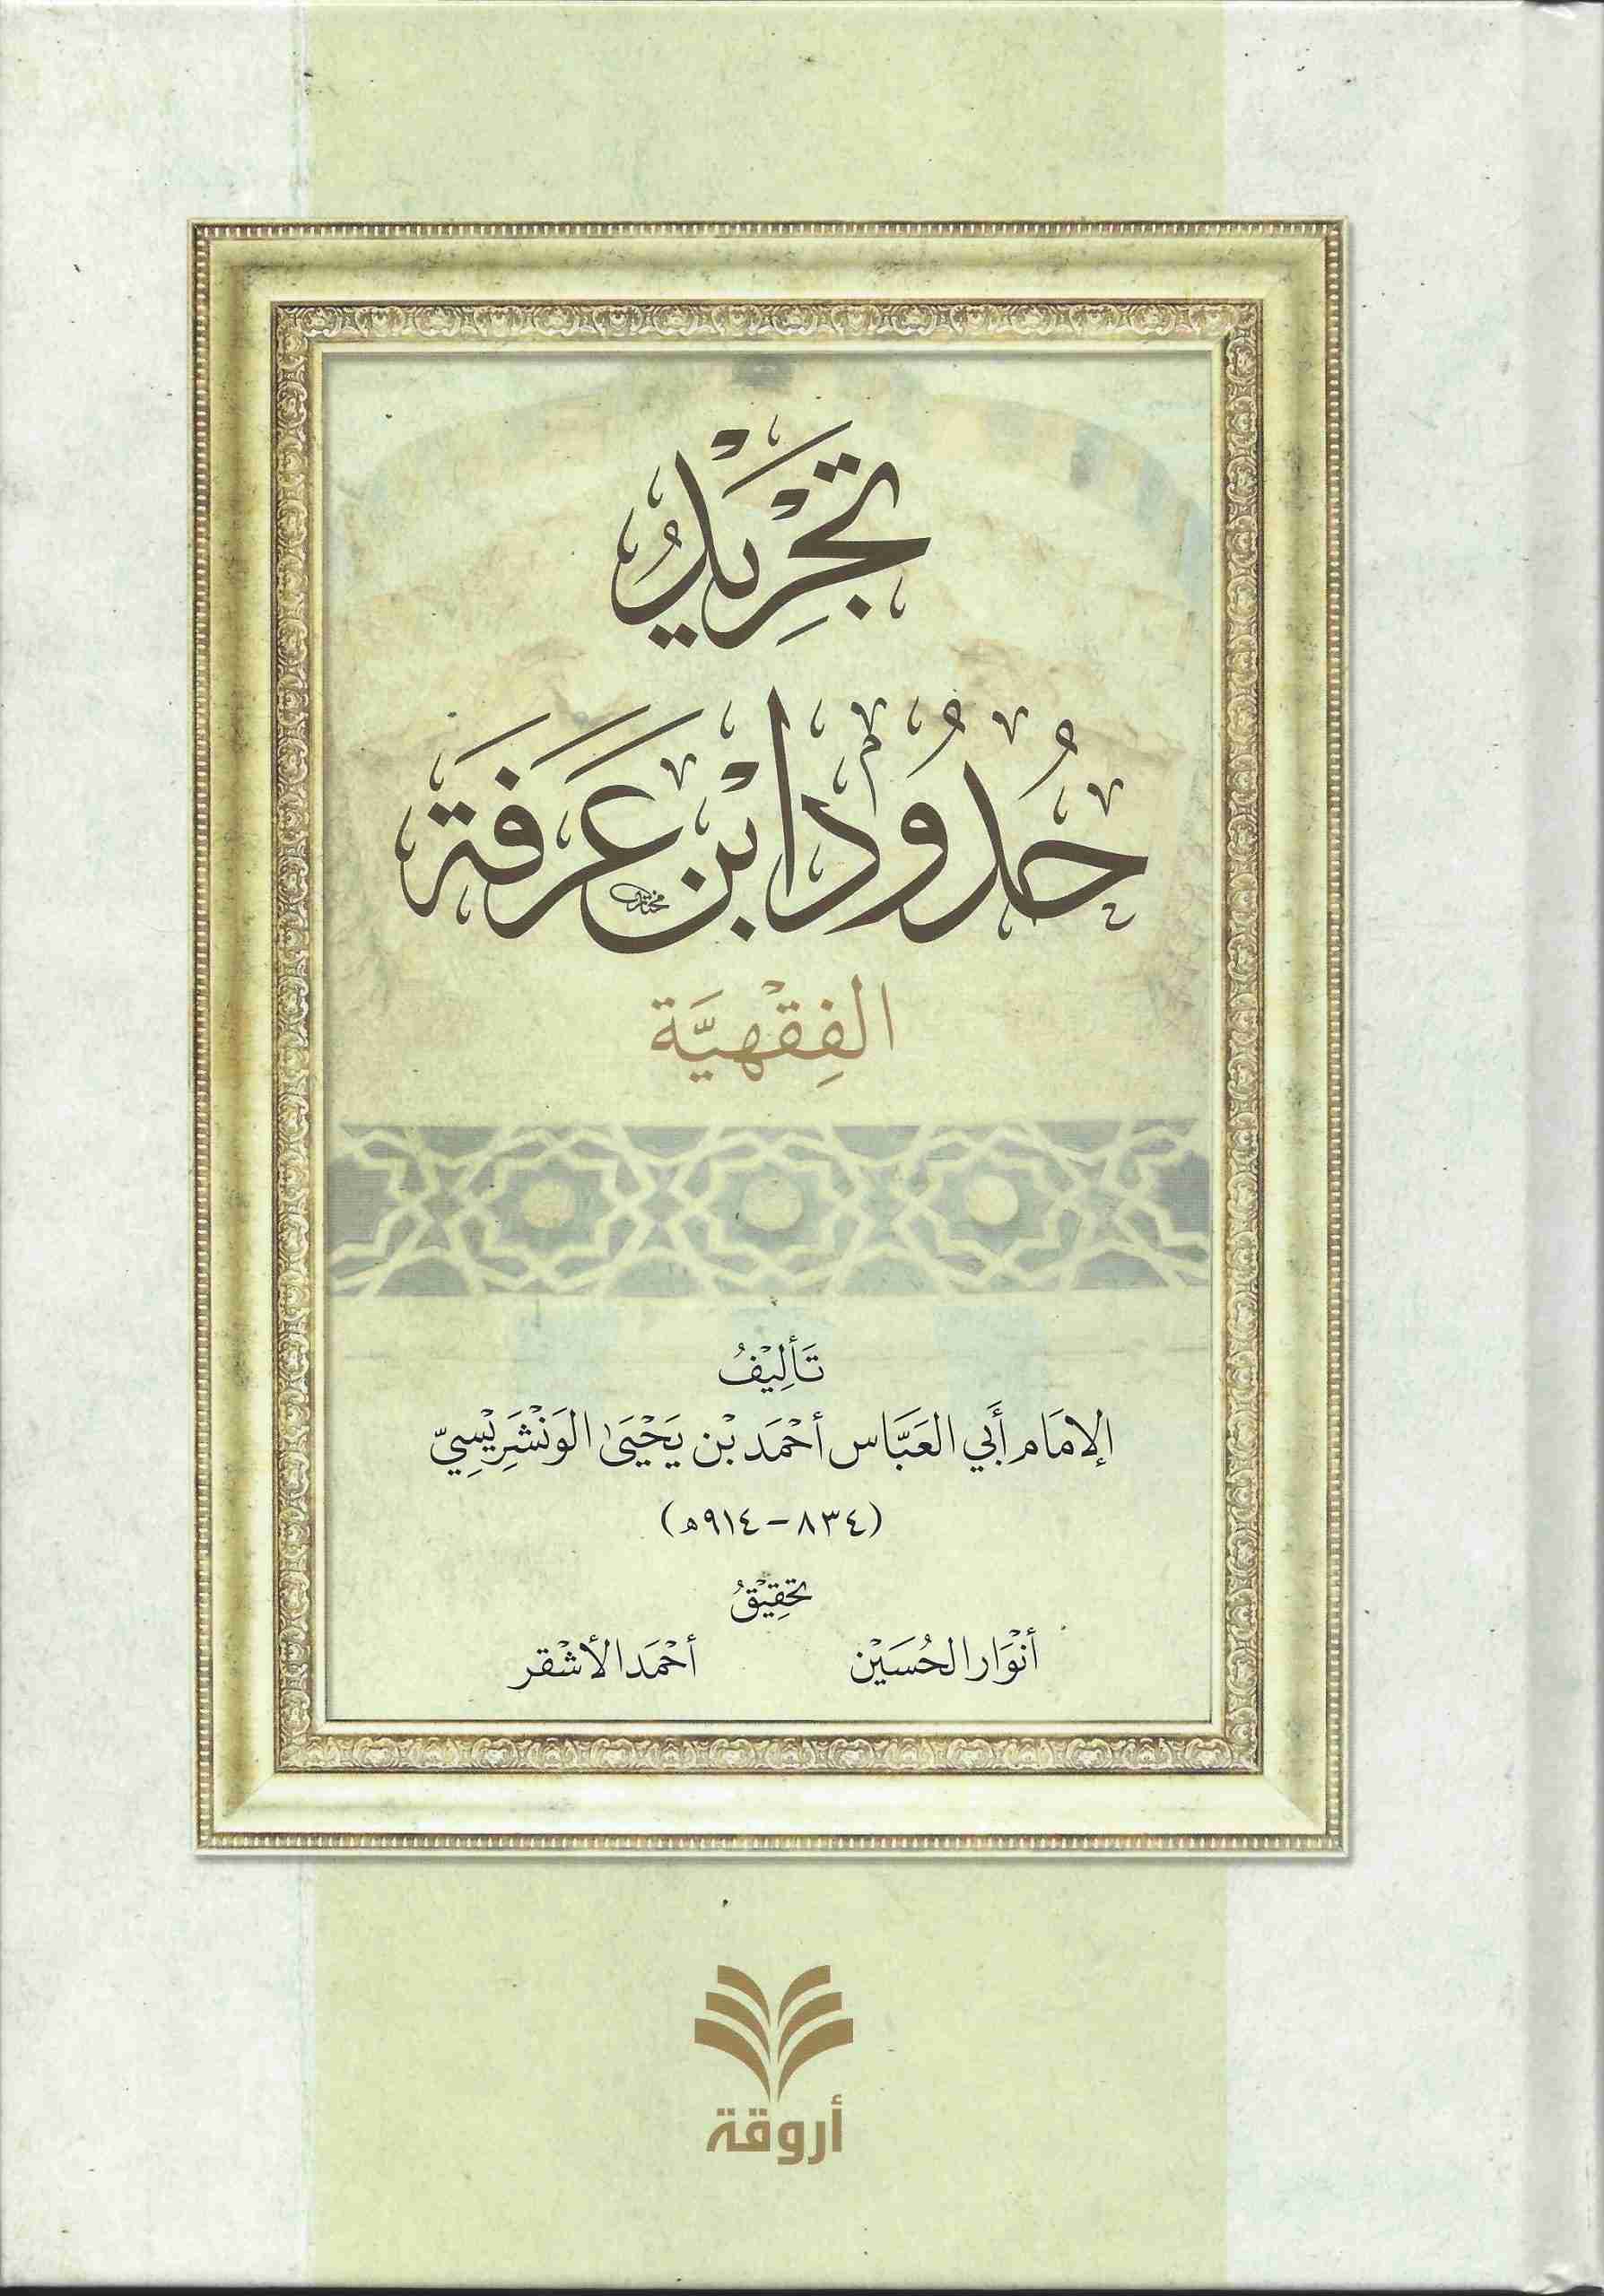 تَجْرِيدُ
حُدُودِ ابْنِ عَرَفَةَ
الفِقْهِيَّة
تَأليْفُ
الإمَام أَبي العَبَّاس أحْمَد بْن يَحْيَىٰ الوَنْشَرِيْسِيّ
(٨٣٤ - ٩١٤ه)
تحقِيْقُ
أنْوَار الحُسَيْن
أحْمَد الأشْقر
أروقة